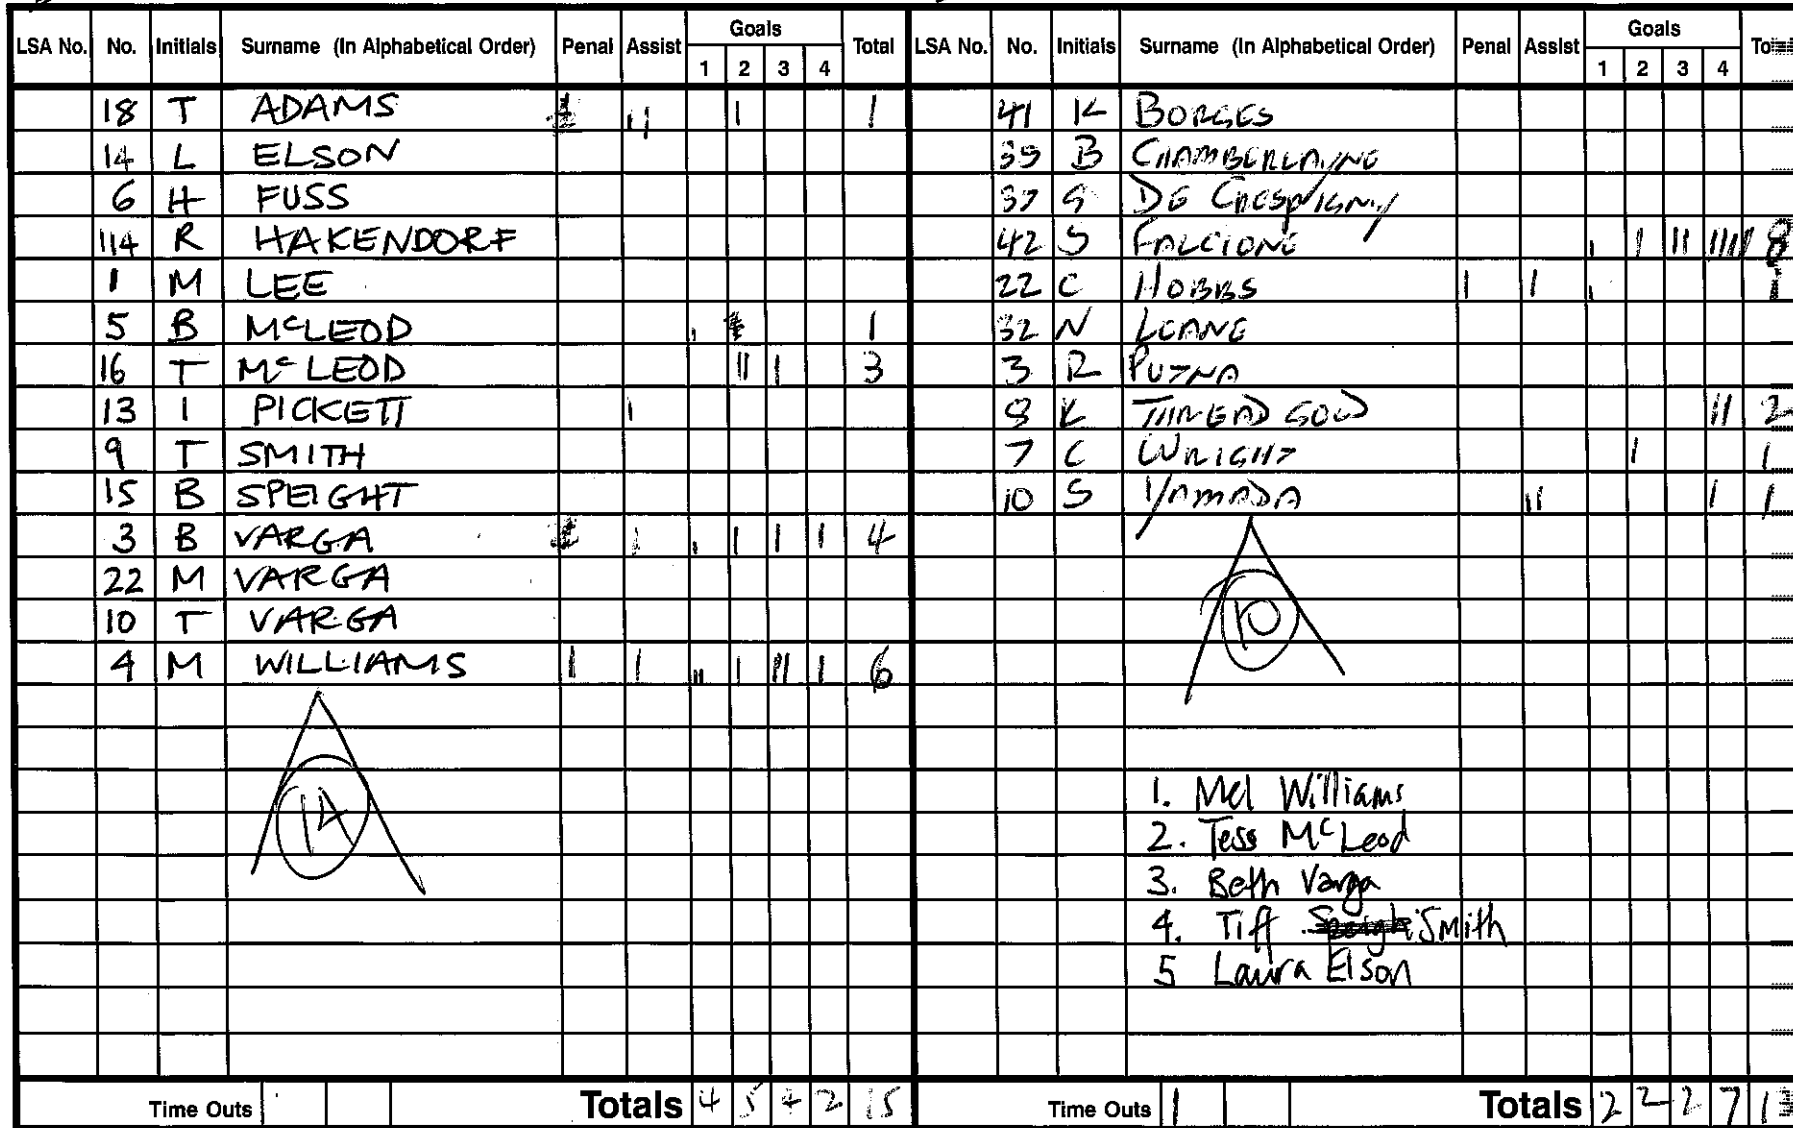 LSA No. No. Initials Surname (In Alphabetical Order) Penal Assist Goals 1 2 3 4 Total
18 T ADAMS 11 1 1
14 L ELSON
6 H FUSS
114 R HAKENDORF
1 M LEE
5 B McLEOD 1 1
16 T McLEOD 11 1 3
13 I PICKETT 1
9 T SMITH
15 B SPEIGHT
3 B VARGA 1 1 1 1 1 4
22 M VARGA
10 T VARGA
4 M WILLIAMS 1 1 11 1 11 1 6
14
Time Outs Totals 4 5 4 2 15
LSA No. No. Initials Surname (In Alphabetical Order) Penal Assist Goals 1 2 3 4
41 K BORGES
39 B CHAMBERLAYNE
37 S DE CRESPIGNY
42 S FALCIONE 1 1 11 1111 8
22 C HOBBS 1 1 1 1
32 N LEANE
3 R PUTNA
K THREADGOLD 11 2
7 C WRIGHT 1 1
10 S YAMADA 11 1 1
10
1. Mel Williams
2. Tess McLeod
3. Beth Varga
4. Tiff Smith
5 Laura Elson
Time Outs 1 Totals 2 2 2 7 13